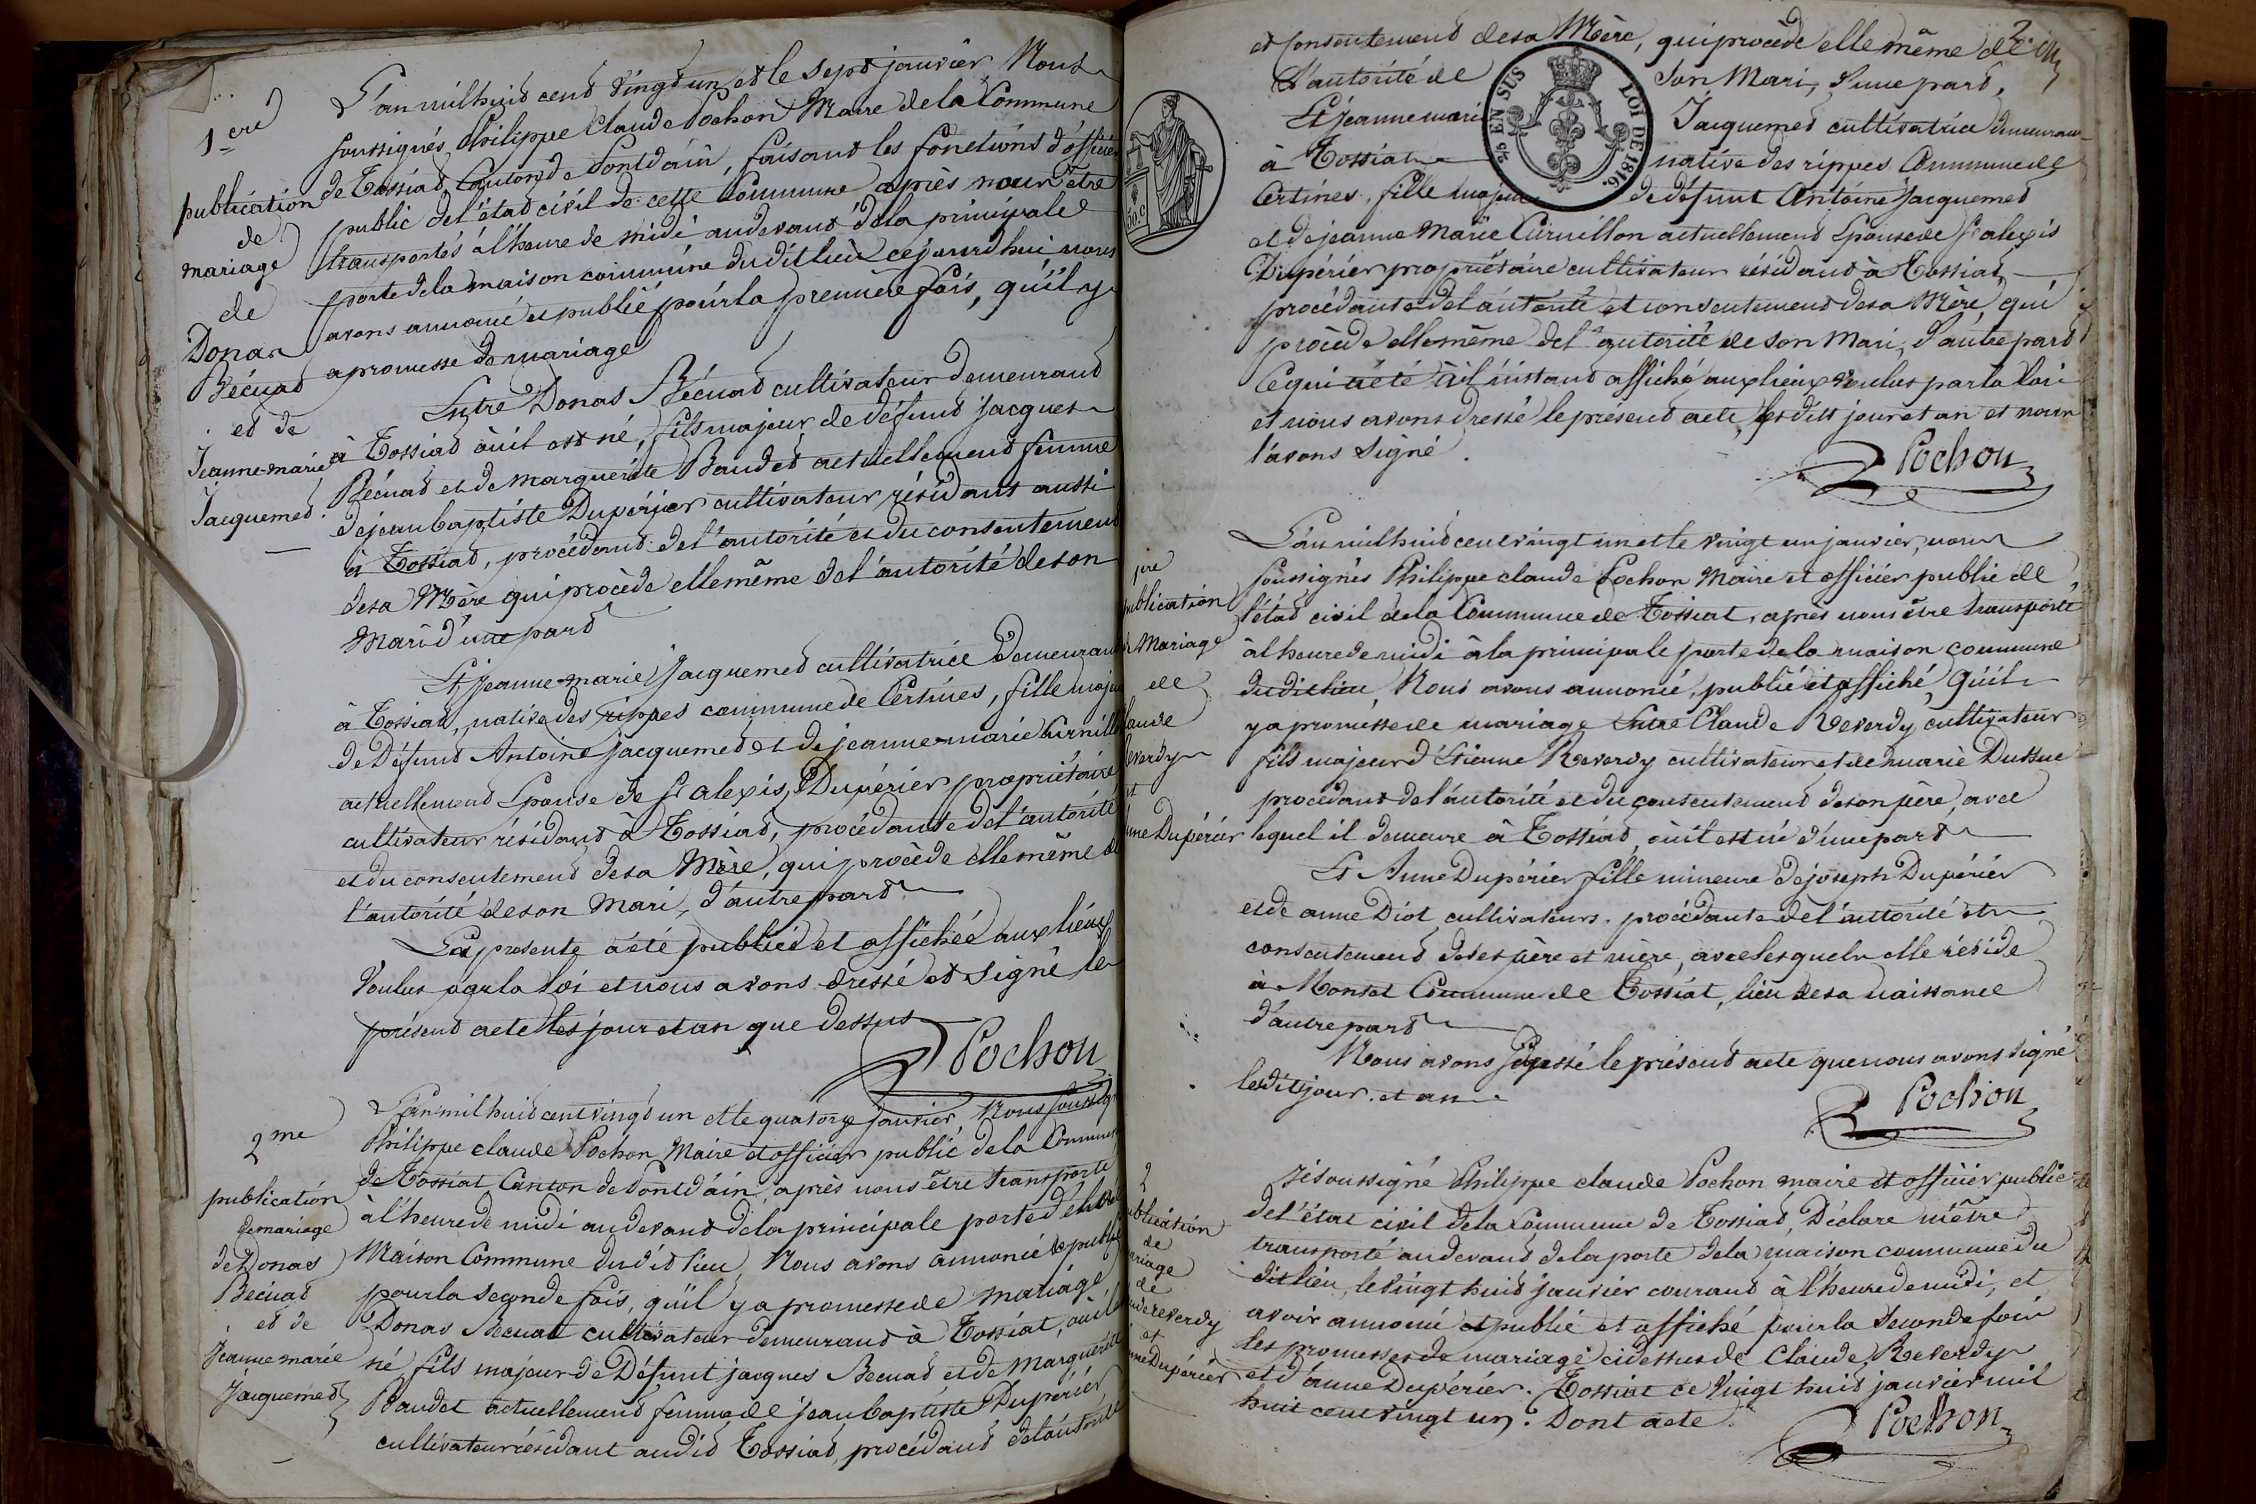 1ere
publication
de
mariage
de
Donas
Bécuad
et de
Jeanne-marie
Jacquemed
L'an mil huit cent vingt un et le sept janvier Nous
soussignés Philippe Claude Pochon Maire de la Commune
de Tossiad, Canton de Pontd'ain, faisant les fonctions d'officier
public de l'état civil de cette Commune après nous être
transportés à l'heure de midi au devant de la principale
porte de la maison commune du dit lieu cejourd'hui, nous
avons annoncé et publié pour la première fois, qu'il y
a promesse de mariage
Entre Donas Bécuad cultivateur demeurant
à Tossiad où il est né, fils majeur de défunt jacques
Bécuad et de marguerite Baudet actuellement femme
de jean baptiste Dupérier cultivateur résidant aussi
à Tossiad, procédant de l'autorité et du consentement
de sa Mère qui procède elle même de l'autorité de son
Mari d'une part
Et Jeanne-marie Jacquemed cultivatrice Demeurant
à Tossiad, native des rippes commune de Certines, fille majeure
de Défunt Antoine jacquemed et de jeanne-marie Curnillon
actuellement Epouse de St alexis Dupérier propriétaire
cultivateur résidant à Tossiad, procédante de l'autorité
et du consentement de sa Mère, qui procède elle même de
l'autorité de son Mari, d'autre part
La presente a été publiée et affichée aux lieux
Voulus par la loi et nous avons dressé et signé le
présent acte les jour et an que dessus
Pochon
2me
publication
de mariage
de Donas
Bécuad
et de
Jeanne marie
Jacquemed
L'an mil huit cent vingt un et le quatorze janvier, Nous soussigné
Philippe claude Pochon Maire et officier public de la Commune
de Tossiat Canton de Pontd'ain, après nous être transporté
à l'heure de midi au devant de la principale porte de la
Maison Commune du dit lieu, Nous avons annoncé et publié
pour la seconde fois, qu'il y a promesse de mariage
Donas Becuad cultivateur demeurant à Tossiat, où il est
né fils majeur de Défunt jacques Becuad et de Marguerite
Baudet actuellement femme de jean baptiste Dupérier
cultivateur résidant audit Tossiad, procédant de l'autorité
et consentement de sa Mère, qui procède elle même de
L'autorité de son Mari, d'une part,
Et jeanne marie Jacquemed cultivatrice demeurant
à Tossiat native des rippes Commune de
Certines, fille majeure de défunt Antoine Jacquemed
et de jeanne Marie Curnillon actuellement Epouse de St alexis
Dupérier propriétaire cultivateur résidant à Tossiad,
procédante de l'autorité et consentement de sa Mère, qui
procède elle même de l'autorité de son Mari, d'autre part
Ce qui a été à l'instant affiché aux lieux voulus par la loi
et nous avons dressé le présent acte, lesdits jour et an et nous
l'avons signé.
Pochon
5/6 EN SUS
LOI DE 1816.
50.C
1ere
publication
de Mariage
de
Claude
Reverdy
et
Anne Dupérier
L'an mil huit cent vingt un et le vingt un janvier, nous
soussignés Philippe claude Pochon Maire et officier public de
l'état civil de la Commune de Tossiat, après nous être transporté
à l'heure de midi à la principale porte de la maison commune
du dit lieu Nous avons annoncé, publié et affiché, qu'il
y a promesse de mariage Entre Claude Reverdy, cultivateur
fils majeur d'Etienne Reverdy cultivateur et de marie Dussue
procédant de l'autorité et du consentement de son père, avec
lequel il demeure à Tossiad, où il est né d'une part
Et Anne Dupérier fille mineure de joseph Dupérier
et de anne Diot cultivateurs, procédante de l'autorité et
consentement de ses père et mère, avec lesquels elle réside
à Monsat Commune de Tossiat, lieu de sa naissance
d'autre part
Nous avons dressé le présent acte que nous avons signé
lesdits jour et an.
Pochon
2
publication
de
mariage
de
Claude reverdy
et
Anne Dupérier
Je soussigné Philippe claude Pochon maire et officier public
de l'état civil de la Commune de Tossiad, Déclare m'être
transporté au devant de la porte de la maison commune du
dit lieu, le vingt huit janvier courant à l'heure de midi, et
avoir annoncé et publié et affiché pour la seconde fois
les promesses de mariage ci dessus de Claude Reverdy
et d'anne Dupérier. Tossiat ce vingt huit janvier mil
huit cent vingt un. Dont acte.
Pochon